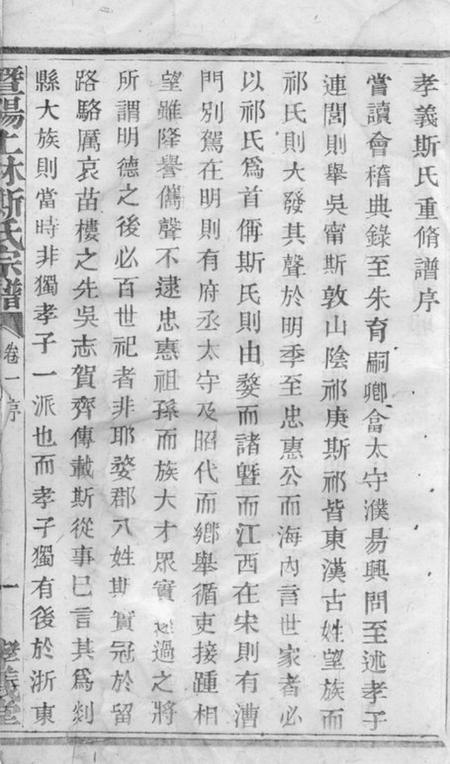 孝義斯氏重脩譜序
嘗讀會稽典錄至朱育嗣卿畣太守濮昜興問至述孝子
連閭則舉吳甯斯敦山陰祁庚斯祁皆東漢古姓望族而
祁氏則大發其聲於明季至忠惠公而海內言世家者必
以祁氏爲首偁斯氏則由婺而諸暨而江西在宋則有漕
門別駕在明則有府丞太守及昭代而鄉舉循吏接踵相
望雖隆譽儁聲不逮忠惠祖孫而族大才眾實過之將
所謂明德之後必百世祀者非耶婺郡八姓斯實冠於留
路駱厲哀苗樓之先吳志賀齊傳載斯從事已言其爲剡
縣大族則當時非獨孝子一派也而孝子獨有後於浙東
暨陽上林斯氏宗譜 卷一 序 一 孝義堂